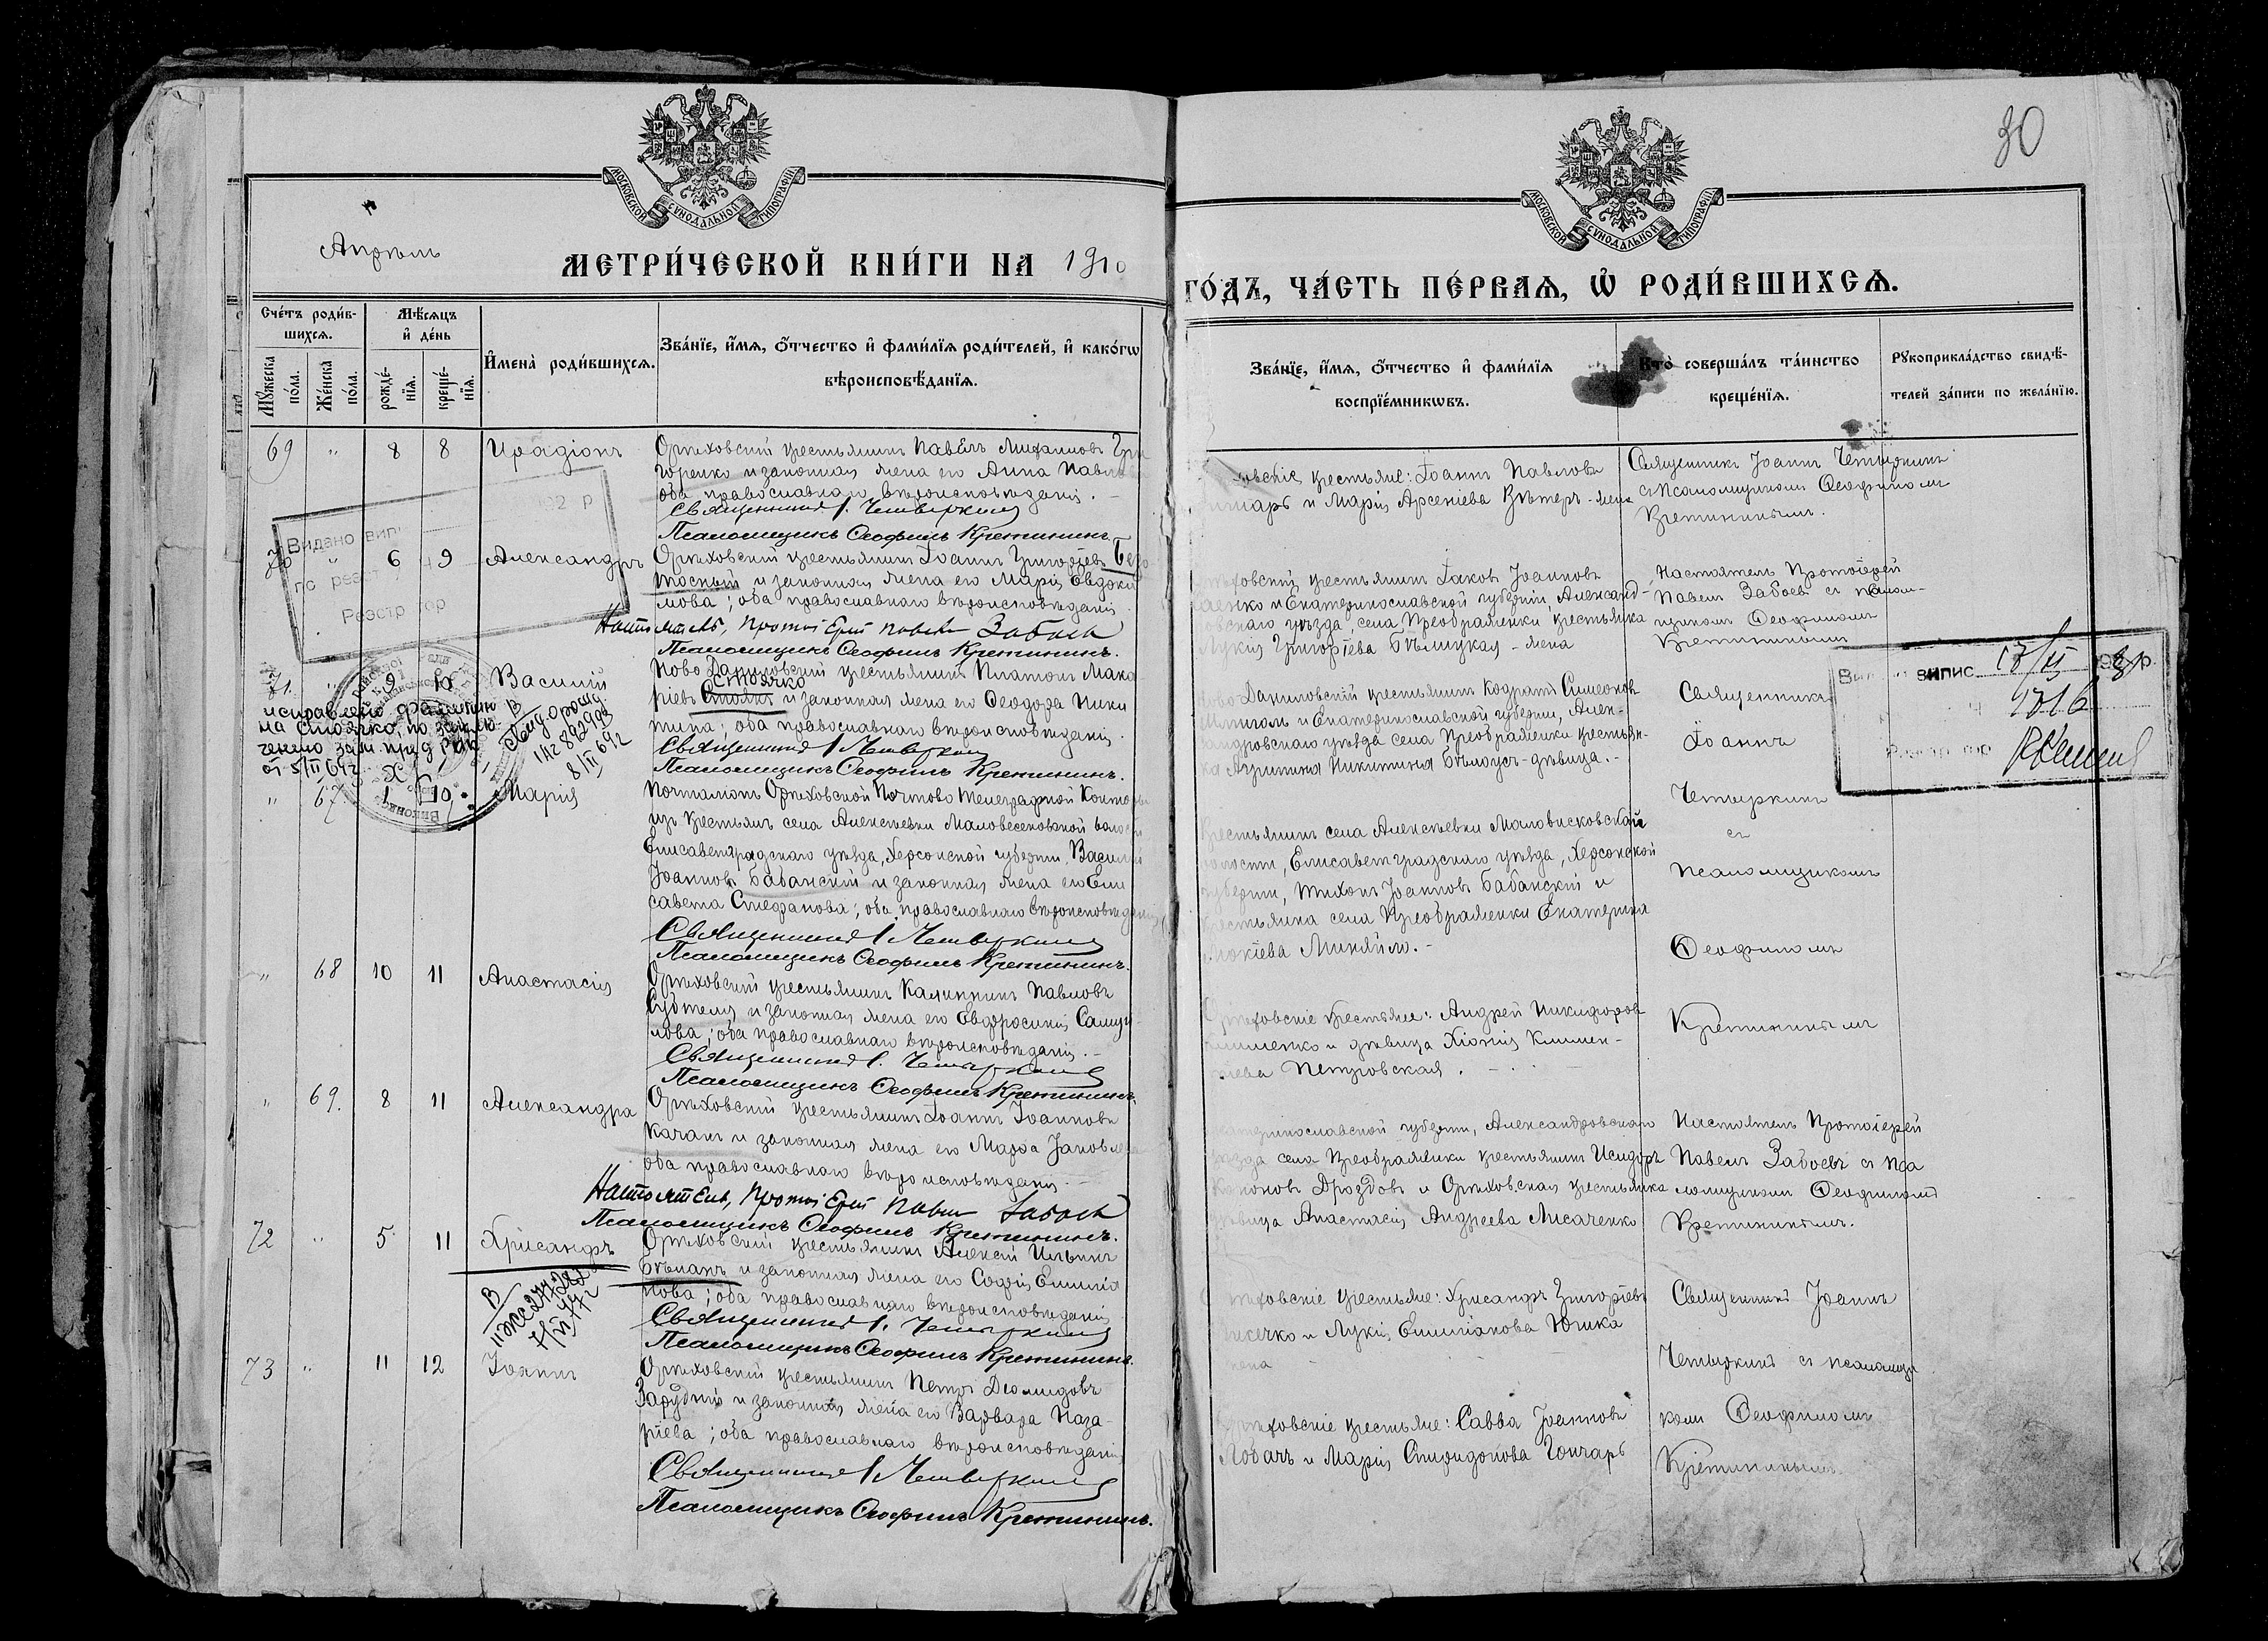 30
МОСКОВСКОЙ СѴНОДАЛЬНОЙ ТИПОГРАФІИ
МОСКОВСКОЙ СѴНОДАЛЬНОЙ ТИПОГРАФІИ
Апрѣль
МЕТРИ́ЧЕСКОЙ КНИ́ГИ НА 1910
ГО́ДЪ, ЧА́СТЬ ПЕ́РВАѦ, Ѡ҆ РОДИ́ВШИХСѦ.
Сче́тъ роди́в-
шихсѧ.
Мꙋ́жеска по́ла.
Же́нска по́ла.
Мѣ́сѧцъ
и҆ де́нь
рожде́-
нїѧ.
креще́-
нїѧ.
И҆мена̀ роди́вшихсѧ.
Зва́нїе, и҆́мѧ, ѻ҆́тчество и҆ фами́лїѧ роди́телей, и҆ како́гѡ
вѣроисповѣ́данїѧ.
Зва́нїе, и҆́мѧ, ѻ҆́тчество и҆ фами́лїѧ
воспрїе́мникѡвъ.
Кто̀ соверша́лъ та́инство
креще́нїѧ.
Рꙋкоприкла́дство свидѣ́-
телей за́писи по жела́нїю.
69 " 8 8 Иродіонъ
Орѣховскій крестьянинъ Павелъ Михаиловъ Гри
горенко и законная жена его Анна Павло
оба православнаго вѣроисповѣданія. –
Священникъ І. Четыркинъ
Псаломщикъ Ѳеофилъ Кретининъ.
крестьяне: Іоаннъ Павловъ
и Марія Арсеніева Вѣтеръ - жена
Священникъ Іоаннъ Четыркинъ
съ псаломщикомъ Ѳеофиломъ
Кретининымъ.
Видано вип
Реєстр
70 " 6 9 Александръ
Орѣховскій крестьянинъ Іоаннъ Григоріевъ
и законная жена его Марія Евдоки
мова; оба православнаго вѣроисповѣданія
Настоятель, Протоіерей Павелъ Забоевъ
Псаломщикъ Ѳеофилъ Кретининъ.
крестьянинъ Іаковъ Іоанновъ
и Екатеринославской губерніи, Александ-
ровскаго уѣзда села Преображенки крестьянка
Лукія Григоріева Бѣлицкая - жена
Настоятель Протоіерей
Павелъ Забоевъ съ псалом-
щикомъ Ѳеофиломъ
Кретининымъ
71. " 9 10 Василій
исправлено фамилии
на Стоячко, по
от 5/II 64г.
В
свид. о рожд
8/II 64г
Ново Даниловскій крестьянинъ Платонъ Мака
Стоячко
ріевъ Стоянъ и законная жена его Ѳеодора Ники
тина; оба православнаго вѣроисповѣданія.
Священникъ І. Четыркинъ
Псаломщикъ Ѳеофилъ Кретининъ.
Ново Даниловскій крестьянинъ Кодратъ Симеоновъ
и Екатеринославской губерніи, Алек-
сандровскаго уѣзда села Преображенки крестьян-
ка Агрипина Никитина Бѣлоусъ - дѣвица. –
Священникъ
Іоаннъ
Четыркинъ
съ
псаломщикомъ
Ѳеофиломъ
Кретининымъ
випис
4016
" 67 1 10 Марія
Почталіонъ Орѣховской Почтово Телеграфной Конторы
изъ крестьянъ села Алексѣевки
Елисаветградскаго уѣзда, Херсонской губерніи, Василій
Іоанновъ Бабанскій и законная жена его Ели
савета Стефанова; оба православнаго вѣроисповѣданія
Священникъ І. Четыркинъ
Псаломщикъ Ѳеофилъ Кретининъ.
Крестьянинъ села Алексѣевки Маловисковской
волости, Елисаветградскаго уѣзда, Херсонской
губерніи, Тихонъ Іоанновъ Бабанскій и
крестьянка села Преображенки Екатерина
" 68 10 11 Анастасія
Орѣховскій крестьянинъ Калинникъ Павловъ
и законная жена его Евфросинія Самуи-
лова; оба православнаго вѣроисповѣданія. –
Священникъ І. Четыркинъ
Псаломщикъ Ѳеофилъ Кретининъ.
Орѣховскіе крестьяне: Андрей Никифоровъ
и дѣвица Хіонія Климен-
тіева Петровская.
" 69. 8 11 Александра
Орѣховскій крестьянинъ Іоаннъ Іоанновъ
Качанъ и законная жена его Марфа Іаковлева
оба православнаго вѣроисповѣданія. –
Настоятель, Протоіерей Павелъ Забоевъ
Псаломщикъ Ѳеофилъ Кретининъ.
Екатеринославской губерніи, Александровскаго
уѣзда села Преображенки крестьянинъ Исидоръ
Кононовъ Дроздовъ и Орѣховская крестьянка
дѣвица Анастасія Андреева Лисаченко
Настоятель Протоіерей
Павелъ Забоевъ съ пса
ломщикомъ Ѳеофиломъ
Кретининымъ.
72 " 5 11 Хрисанфъ
В
II ЖС 274282
Орѣховскій крестьянинъ Алексій Ильинъ
Бѣланъ и законная жена его Софія Емилія
нова; оба православнаго вѣроисповѣданія
Священникъ І. Четыркинъ
Псаломщикъ Ѳеофилъ Кретининъ.
Орѣховскіе крестьяне: Хрисанфъ Григоріевъ
и Лукія Емиліанова
жена
Священникъ Іоаннъ
Четыркинъ съ псаломщи
комъ Ѳеофиломъ
Кретининымъ.
73 " 11 12 Іоаннъ
Орѣховскій крестьянинъ Петръ Діомидовъ
Зарудній и законная жена его Варвара Наза-
ріева; оба православнаго вѣроисповѣданія
Священникъ І. Четыркинъ
Псаломщикъ Ѳеофилъ Кретининъ.
Орѣховскіе крестьяне: Савва Іоанновъ
Лобачъ и Марія Спиридонова Гончаръ